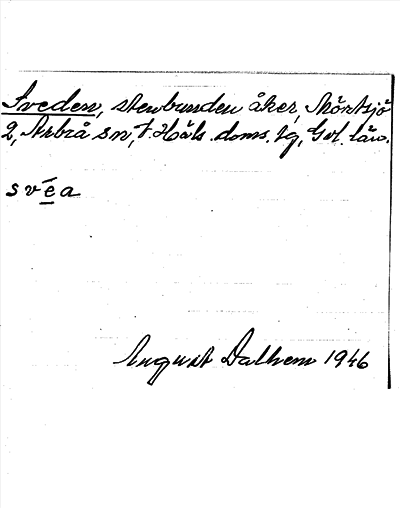 Sveden, stenbunden åker, Mörtsjö
2, Arbrå sn, V. Häls. doms. tg, Gvl. län.
svéa
August Dalhem 1946